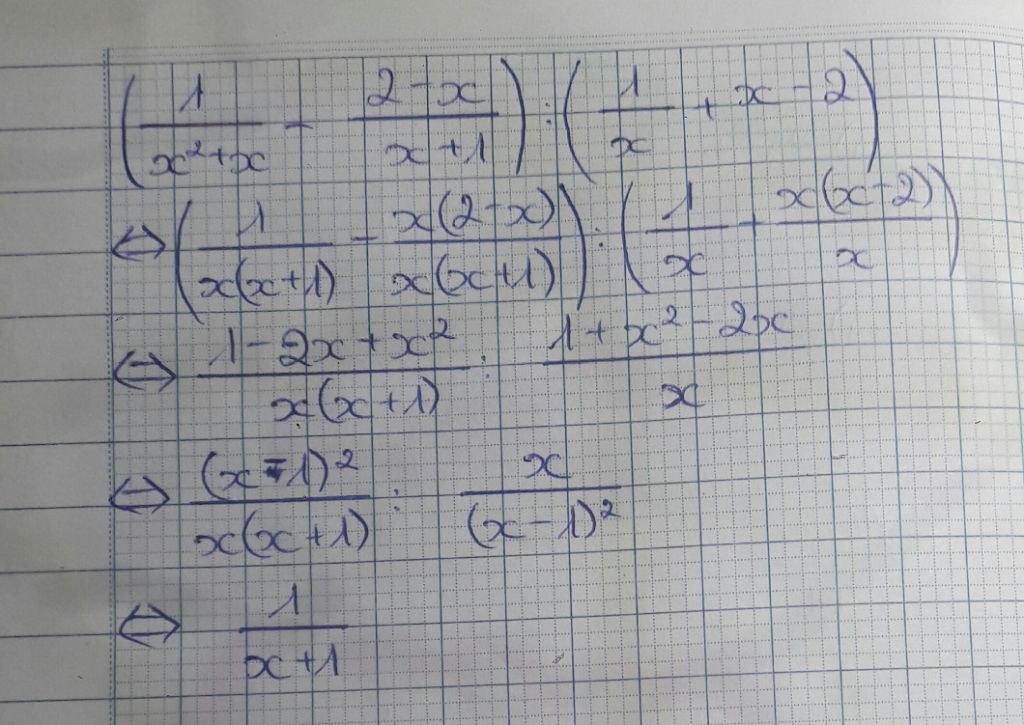 (1/(x²+x) - (2-x)/(x+1)) : (1/x + x - 2)
⇔ (1/(x(x+1)) - x(2-x)/(x(x+1))) : (1/x + x(x-2)/x)
⇔ (1-2x+x²)/(x(x+1)) : (1+x²-2x)/x
⇔ (x-1)²/(x(x+1)) : x/(x-1)²
⇔ 1/(x+1)